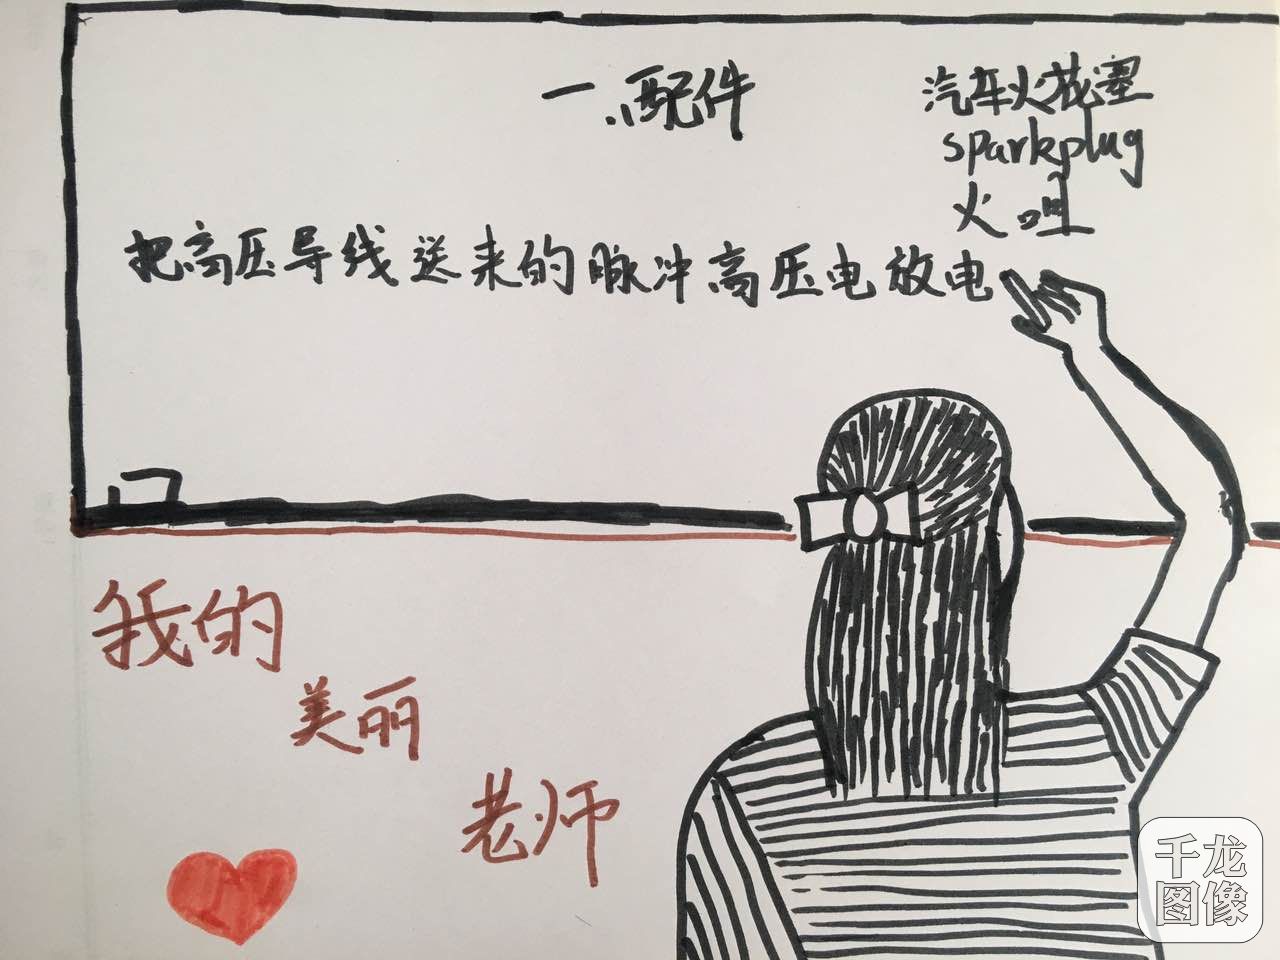 一、配件
汽车火花塞
sparkplug
火咀
把高压导线送来的脉冲高压电放电
我的
美丽
老师
千龙
图像